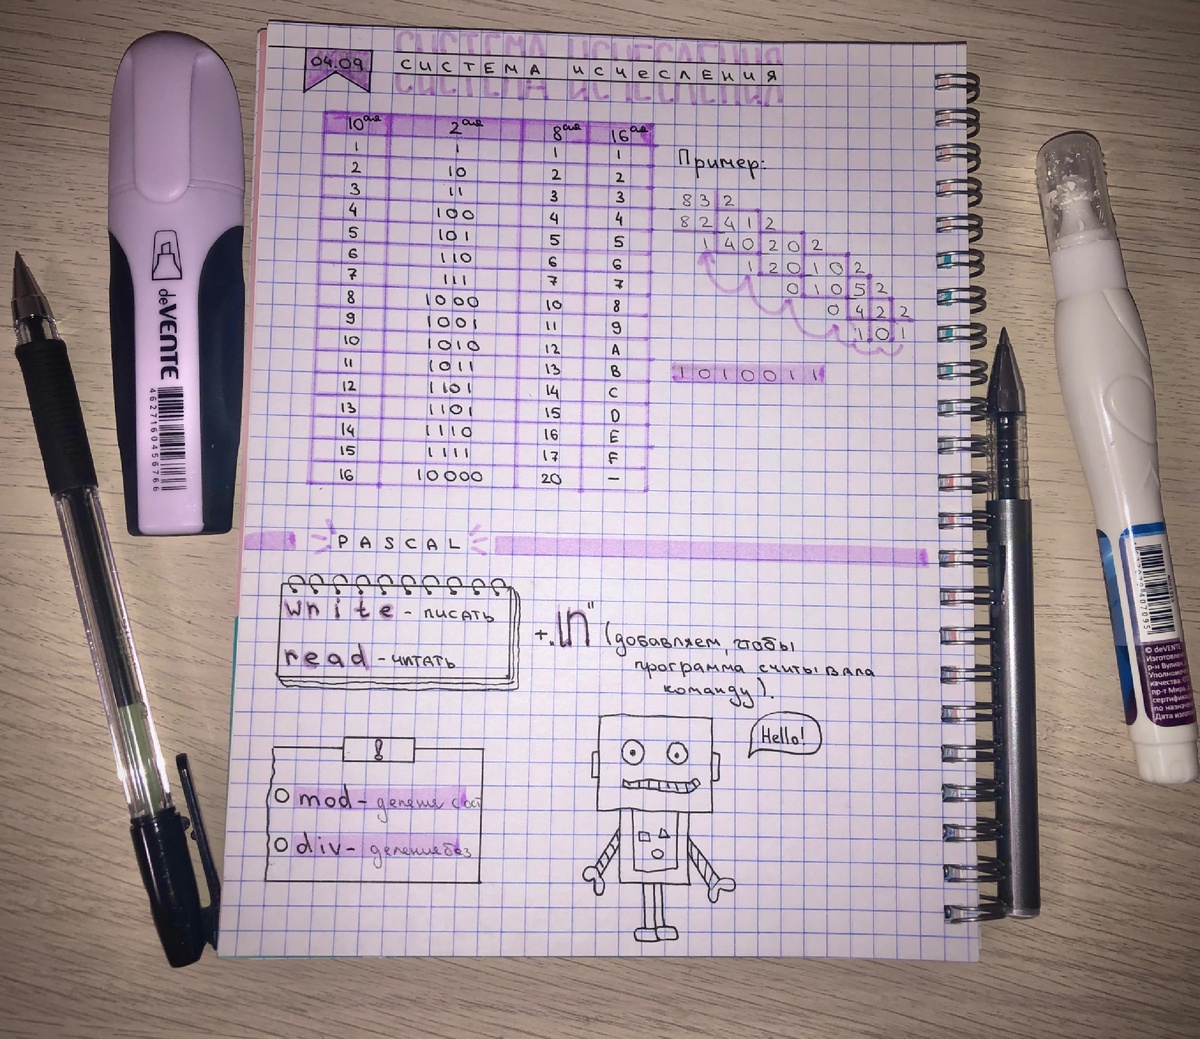 04.09
СИСТЕМА ИСЧеСЛЕНИЯ
10ая 2ая 8ая 16ая
1 1 1 1
2 10 2 2
3 11 3 3
4 100 4 4
5 101 5 5
6 110 6 6
7 111 7 7
8 1000 10 8
9 1001 11 9
10 1010 12 A
11 1011 13 B
12 1101 14 C
13 1101 15 D
14 1110 16 E
15 1111 17 F
16 10000 20 –
Пример:
8 3 2
8 2 4 1 2
1 4 0 2 0 2
1 2 0 1 0 2
0 1 0 5 2
0 4 2 2
1 0 1
1 0 1 0 0 1 1
PASCAL
write - писать
read - читать
+ „ln" (добавляем, чтобы
программа считывала
команду).
Hello!
!
mod - деление с ост
div - деление без
deVENTE
4627160456766
© deVENTE